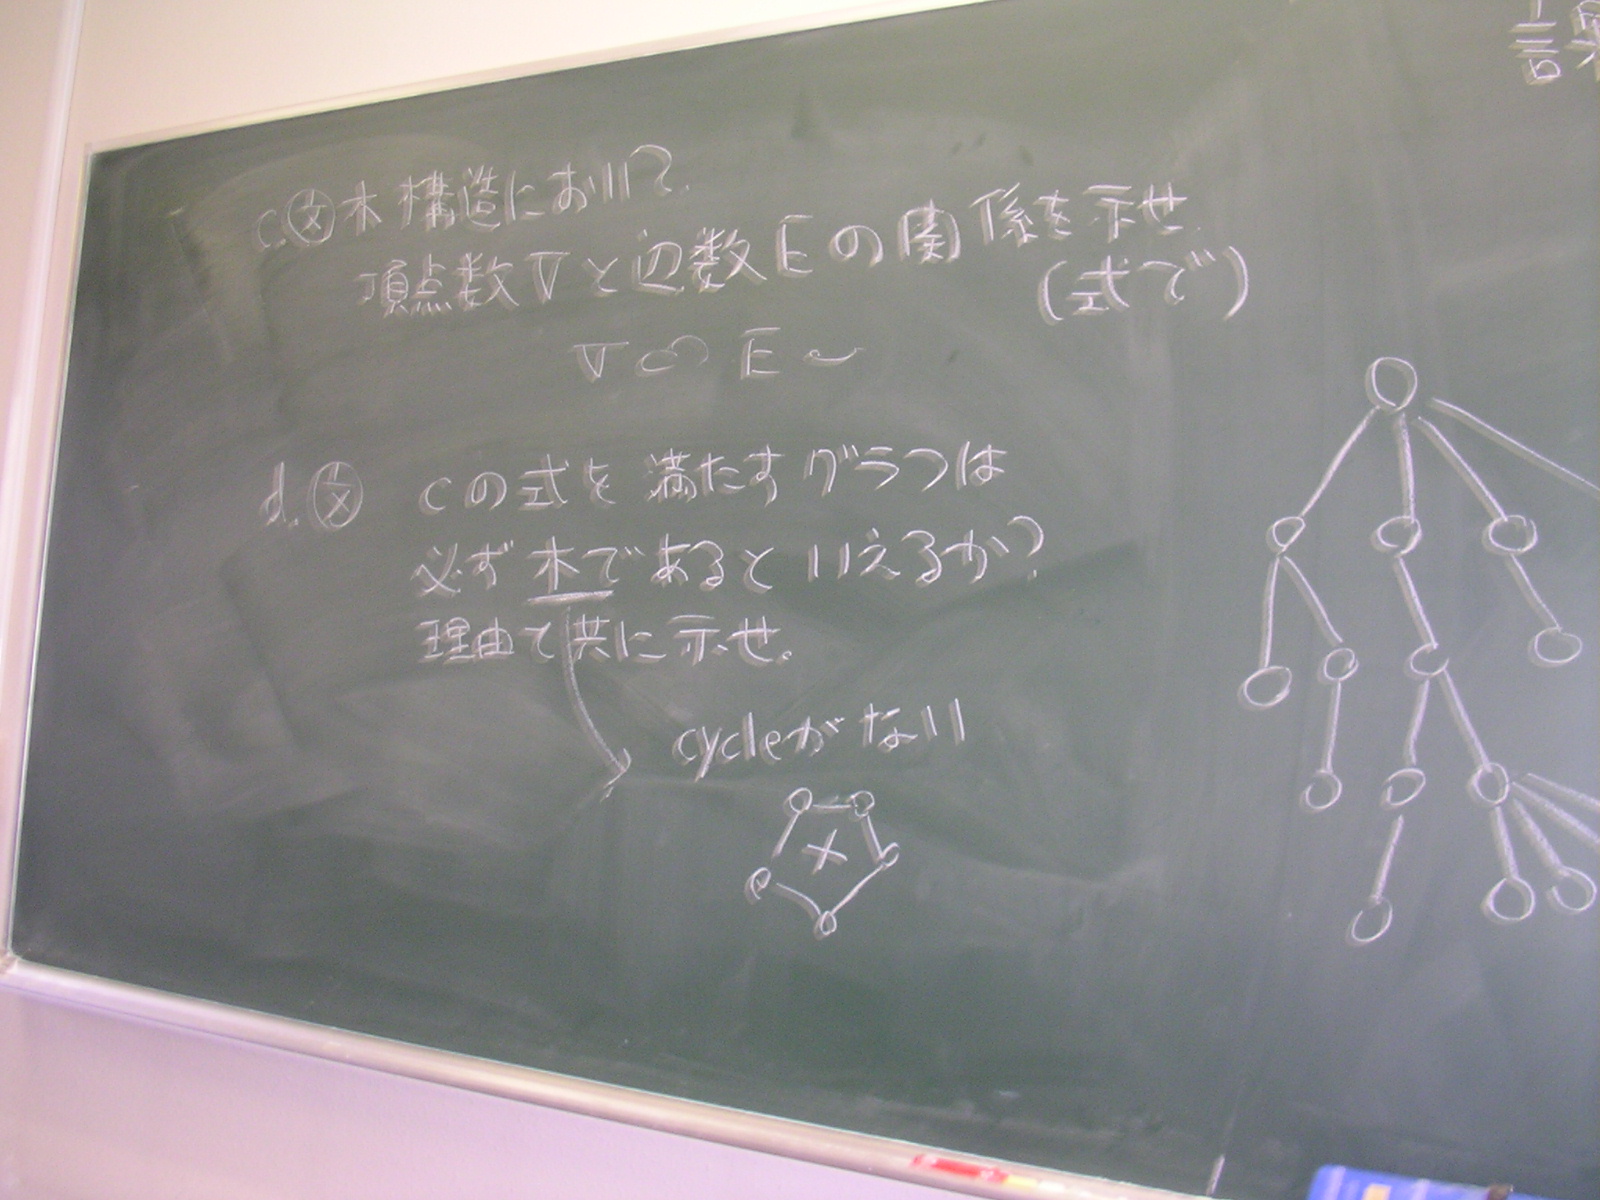 c. 文 木構造において
頂点数 V と辺数 E の関係を示せ.
(式で)
V E
d. 文 cの式を満たすグラフは
必ず木であるといえるか?
理由て共に示せ。
cycleがない